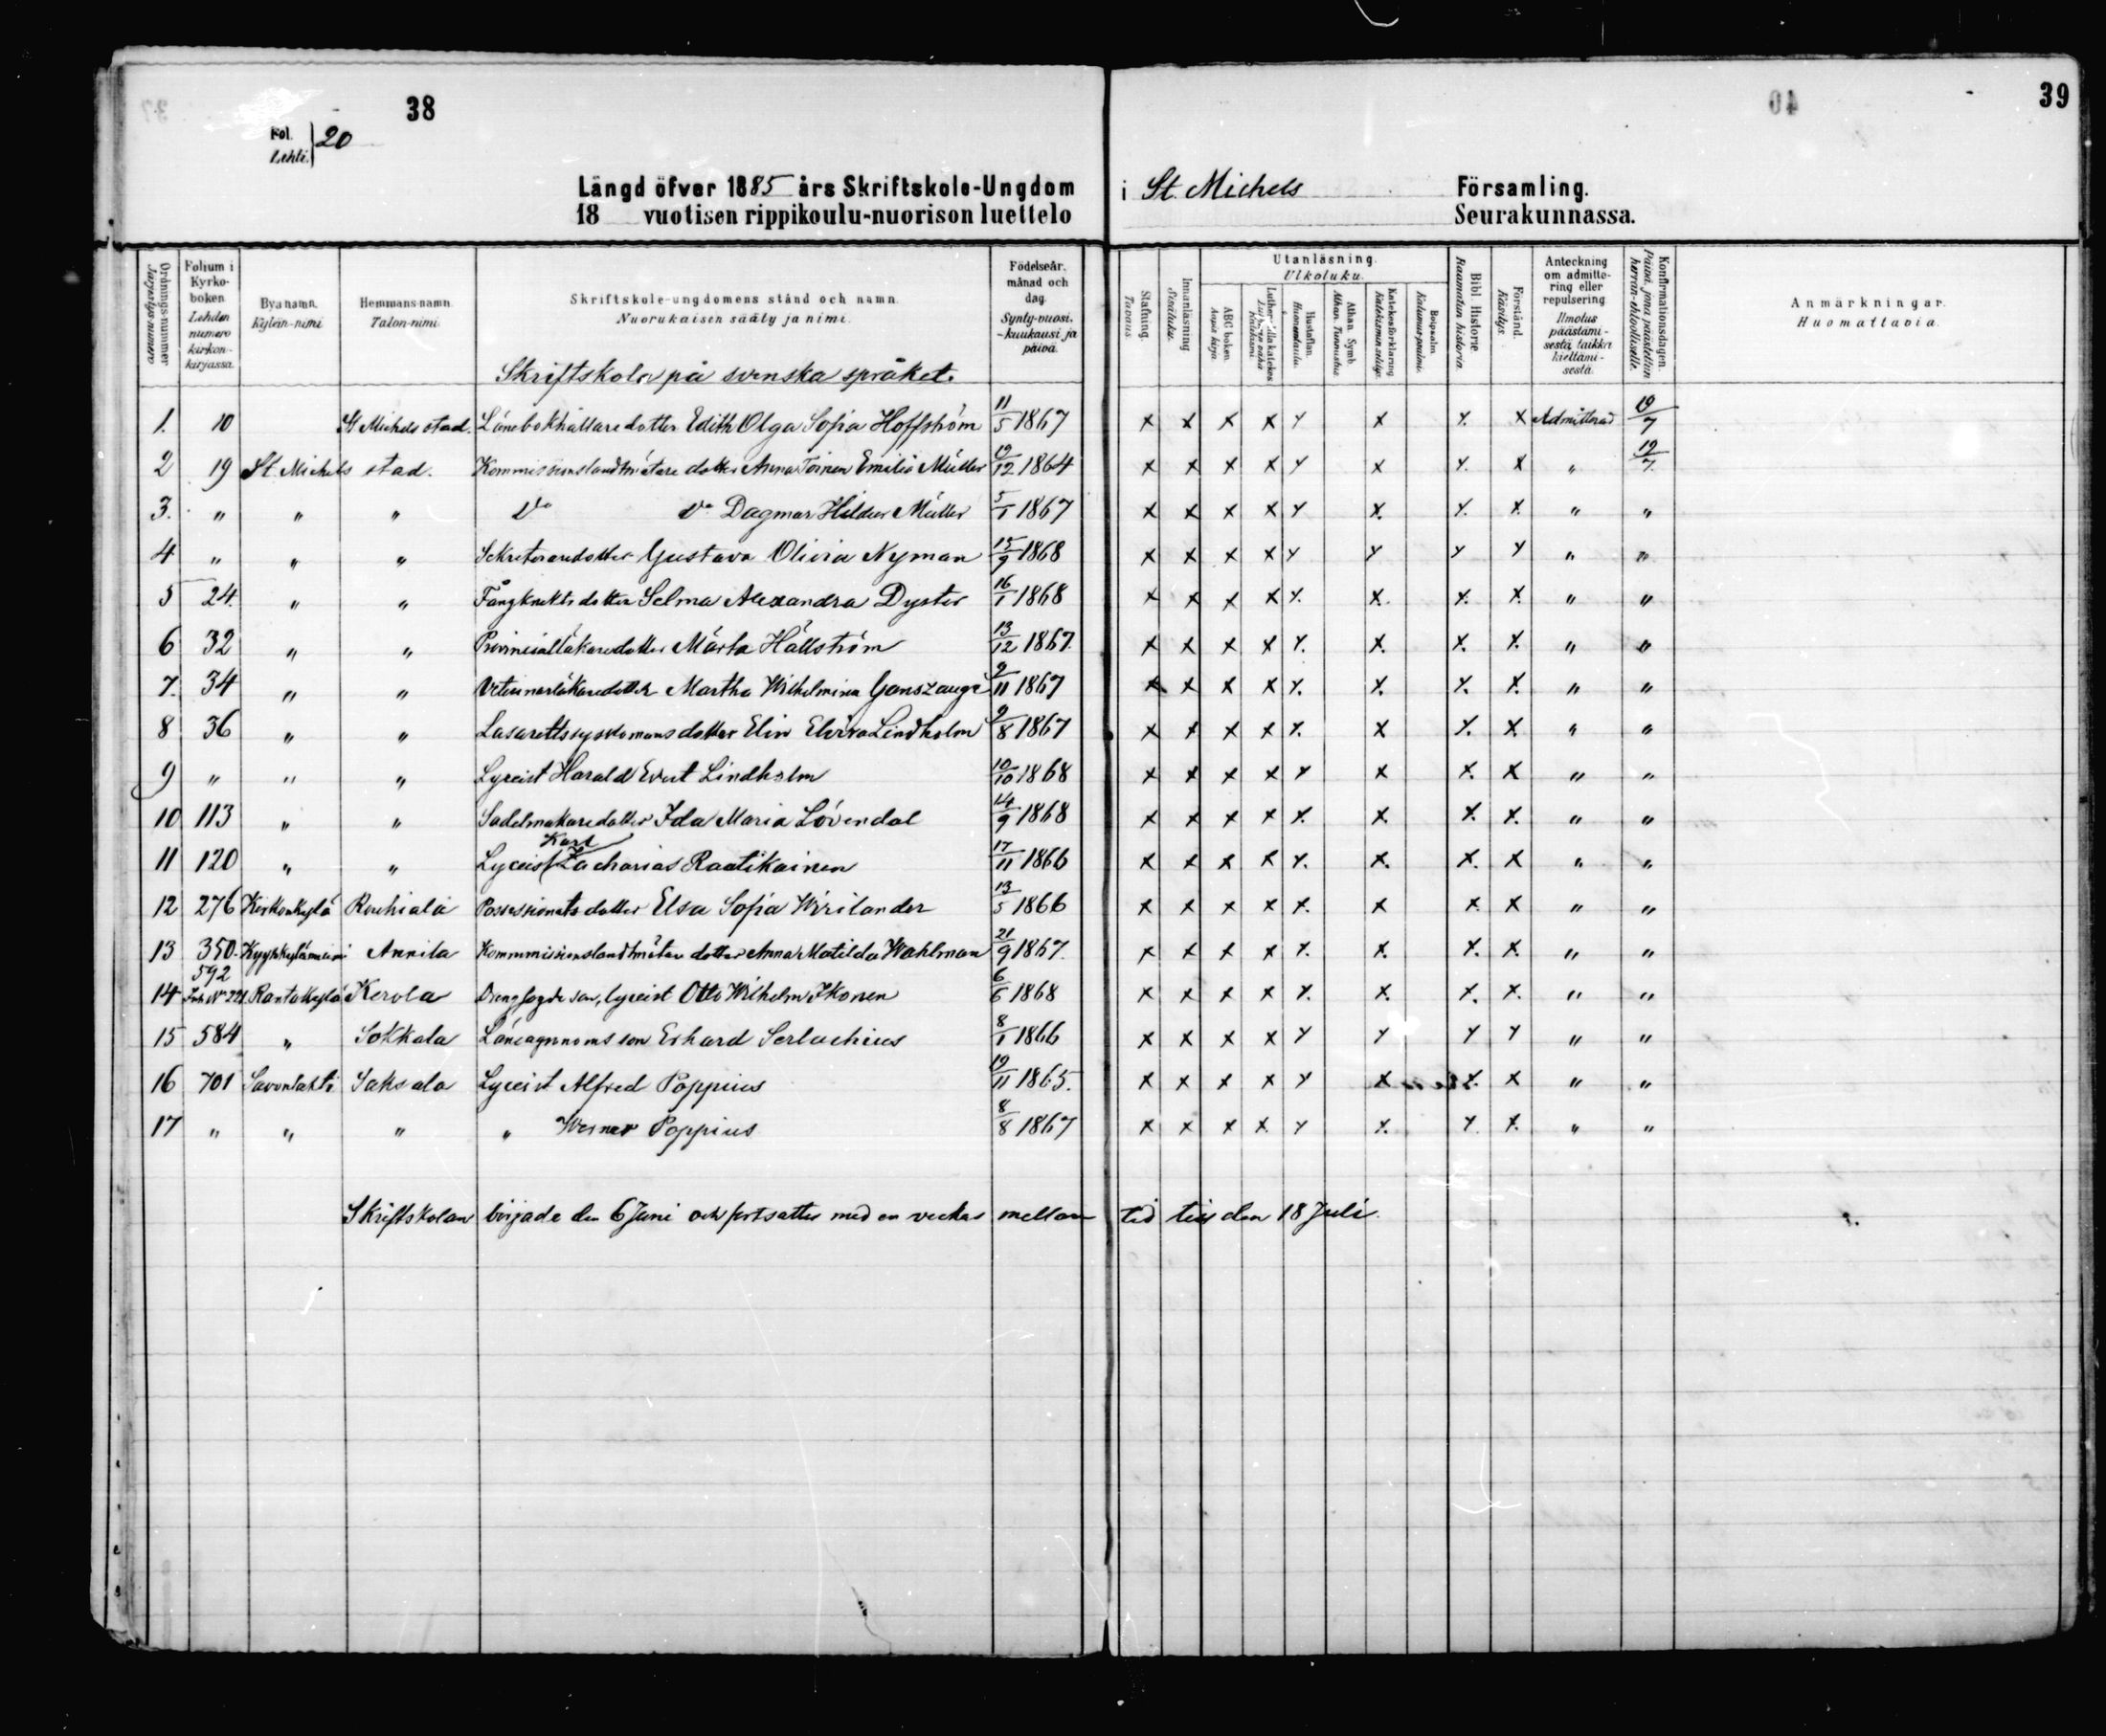 38
39
40
Fol. Lehti. 20
Längd öfver 1885 års Skriftskole-Ungdom i St. Michels Församling.
18 vuotisen rippikoulu-nuorison luettelo Seurakunnassa.
Ordnings-nummer Järjestys-numero
Folium i Kyrko-boken Lehden numero kirkon-kirjassa.
Byanamn. Kylän-nimi
Hemmans-namn. Talon-nimi
Skriftskole-ungdomens stånd och namn. Nuorukaisen sääty ja nimi.
Födelseår, månad och dag. Synty-vuosi, -kuukausi ja päivä.
Stafning. Tavaus
Innanläsning Sisäluku.
Utanläsning. Ulkoluku.
ABC boken Aapis kirja
Hustaflan. Huoneentaulu.
Athan. Symb. Athan. Tunnustus
Katekesförklaring Katekismen selitys.
Botpsalm Katumuspsalmi.
Bibl. Historie Raamatun historia
Förstånd. Käsitys.
Anteckning om admitte-ring eller repulsering Ilmotus päästämi-sestä taikka kieltämi-sestä.
Konfirmationsdagen. Päivä, jona päästettiin herran-ehtoolliselle.
Anmärkningar. Huomattavia.
Skriftskola på svenska språket.
1. 10 St Michels stad. Länebokhållare dotter Edith Olga Sofia Hoffström 11/5 1867 x x x x x x x x Admitterad 19/7
2 19 St. Michels stad. Kommissionslandtmätare dotter Anna Toinen Emilia Müller 19/12 1864 x x x x x x x x " 12/7.
3. " " " Do Do Dagmar Hildur Müller 5/1 1867 x x x x x x x x " "
4 " " " Sekreteraredotter Gustava Olivia Nyman 15/9 1868 x x x x x x x x " "
5 24. " " Fångknekts dotter Selma Alexandra Dyster 16/1 1868 x x x x x x x x " "
6 32 " " Provinsialläkaredotter Märta Hällström 13/12 1867. x x x x x x x x " "
7. 34 " " Veterinärläkaredotter Martha Wilhelmina Ganszauge 9/11 1867 x x x x x x x x " "
8 36 " " Lasarettssysslomans dotter Elin Elvira Lindholm 9/8 1867 x x x x x x x x " "
9 " " " Lyceist Harald Evert Lindholm 10/10 1868 x x x x x x x x " "
10 113 " " Sadelmakaredotter Ida Maria Lövendal 14/9 1868 x x x x x x x x " "
11 120 " " Lyceist Karl Zacharias Raatikainen 17/11 1866 x x x x x x x x " "
12 276 Kirkonkylä Rouhiala Possessionats dotter Elsa Sofia Wirilander 13/5 1866 x x x x x x x x " "
13 350. Kyyhkylänniemi Annila Kommmissionslandtmätare dotter Anna Matilda Wahlman 21/9 1867. x x x x x x x x " "
14 592 Inh No 221 Rantakylä Kerola Drengfogde son, lyceist Otto Wilhelm Ikonen 6/6 1868 x x x x x x x x " "
15 584 " Sokkala Läneagronoms son Erhard Serlachius 8/1 1866 x x x x x x x x " "
16 701 Savonlahti Saksala Lyceist Alfred Poppius 19/11 1865. x x x x x x x x " "
17 " " " " Werner Poppius 8/8 1867 x x x x x x x x " "
Skriftskolan började den 6 Juni och fortsattes med en veckas mellan tid till den 18 Juli.